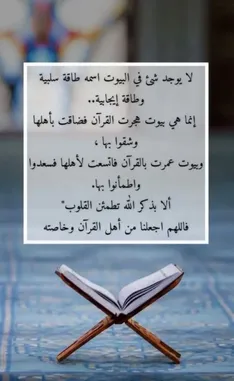 لا يوجد شئ في البيوت اسمه طاقة سلبية
وطاقة إيجابية..
إنما هي بيوت هجرت القرآن فضاقت بأهلها
وشقوا بها ،
وبيوت عمرت بالقرآن فاتسعت لأهلها فسعدوا
واطمأنوا بها.
ألا بذكر الله تطمئن القلوب"
فاللهم اجعلنا من أهل القرآن وخاصته